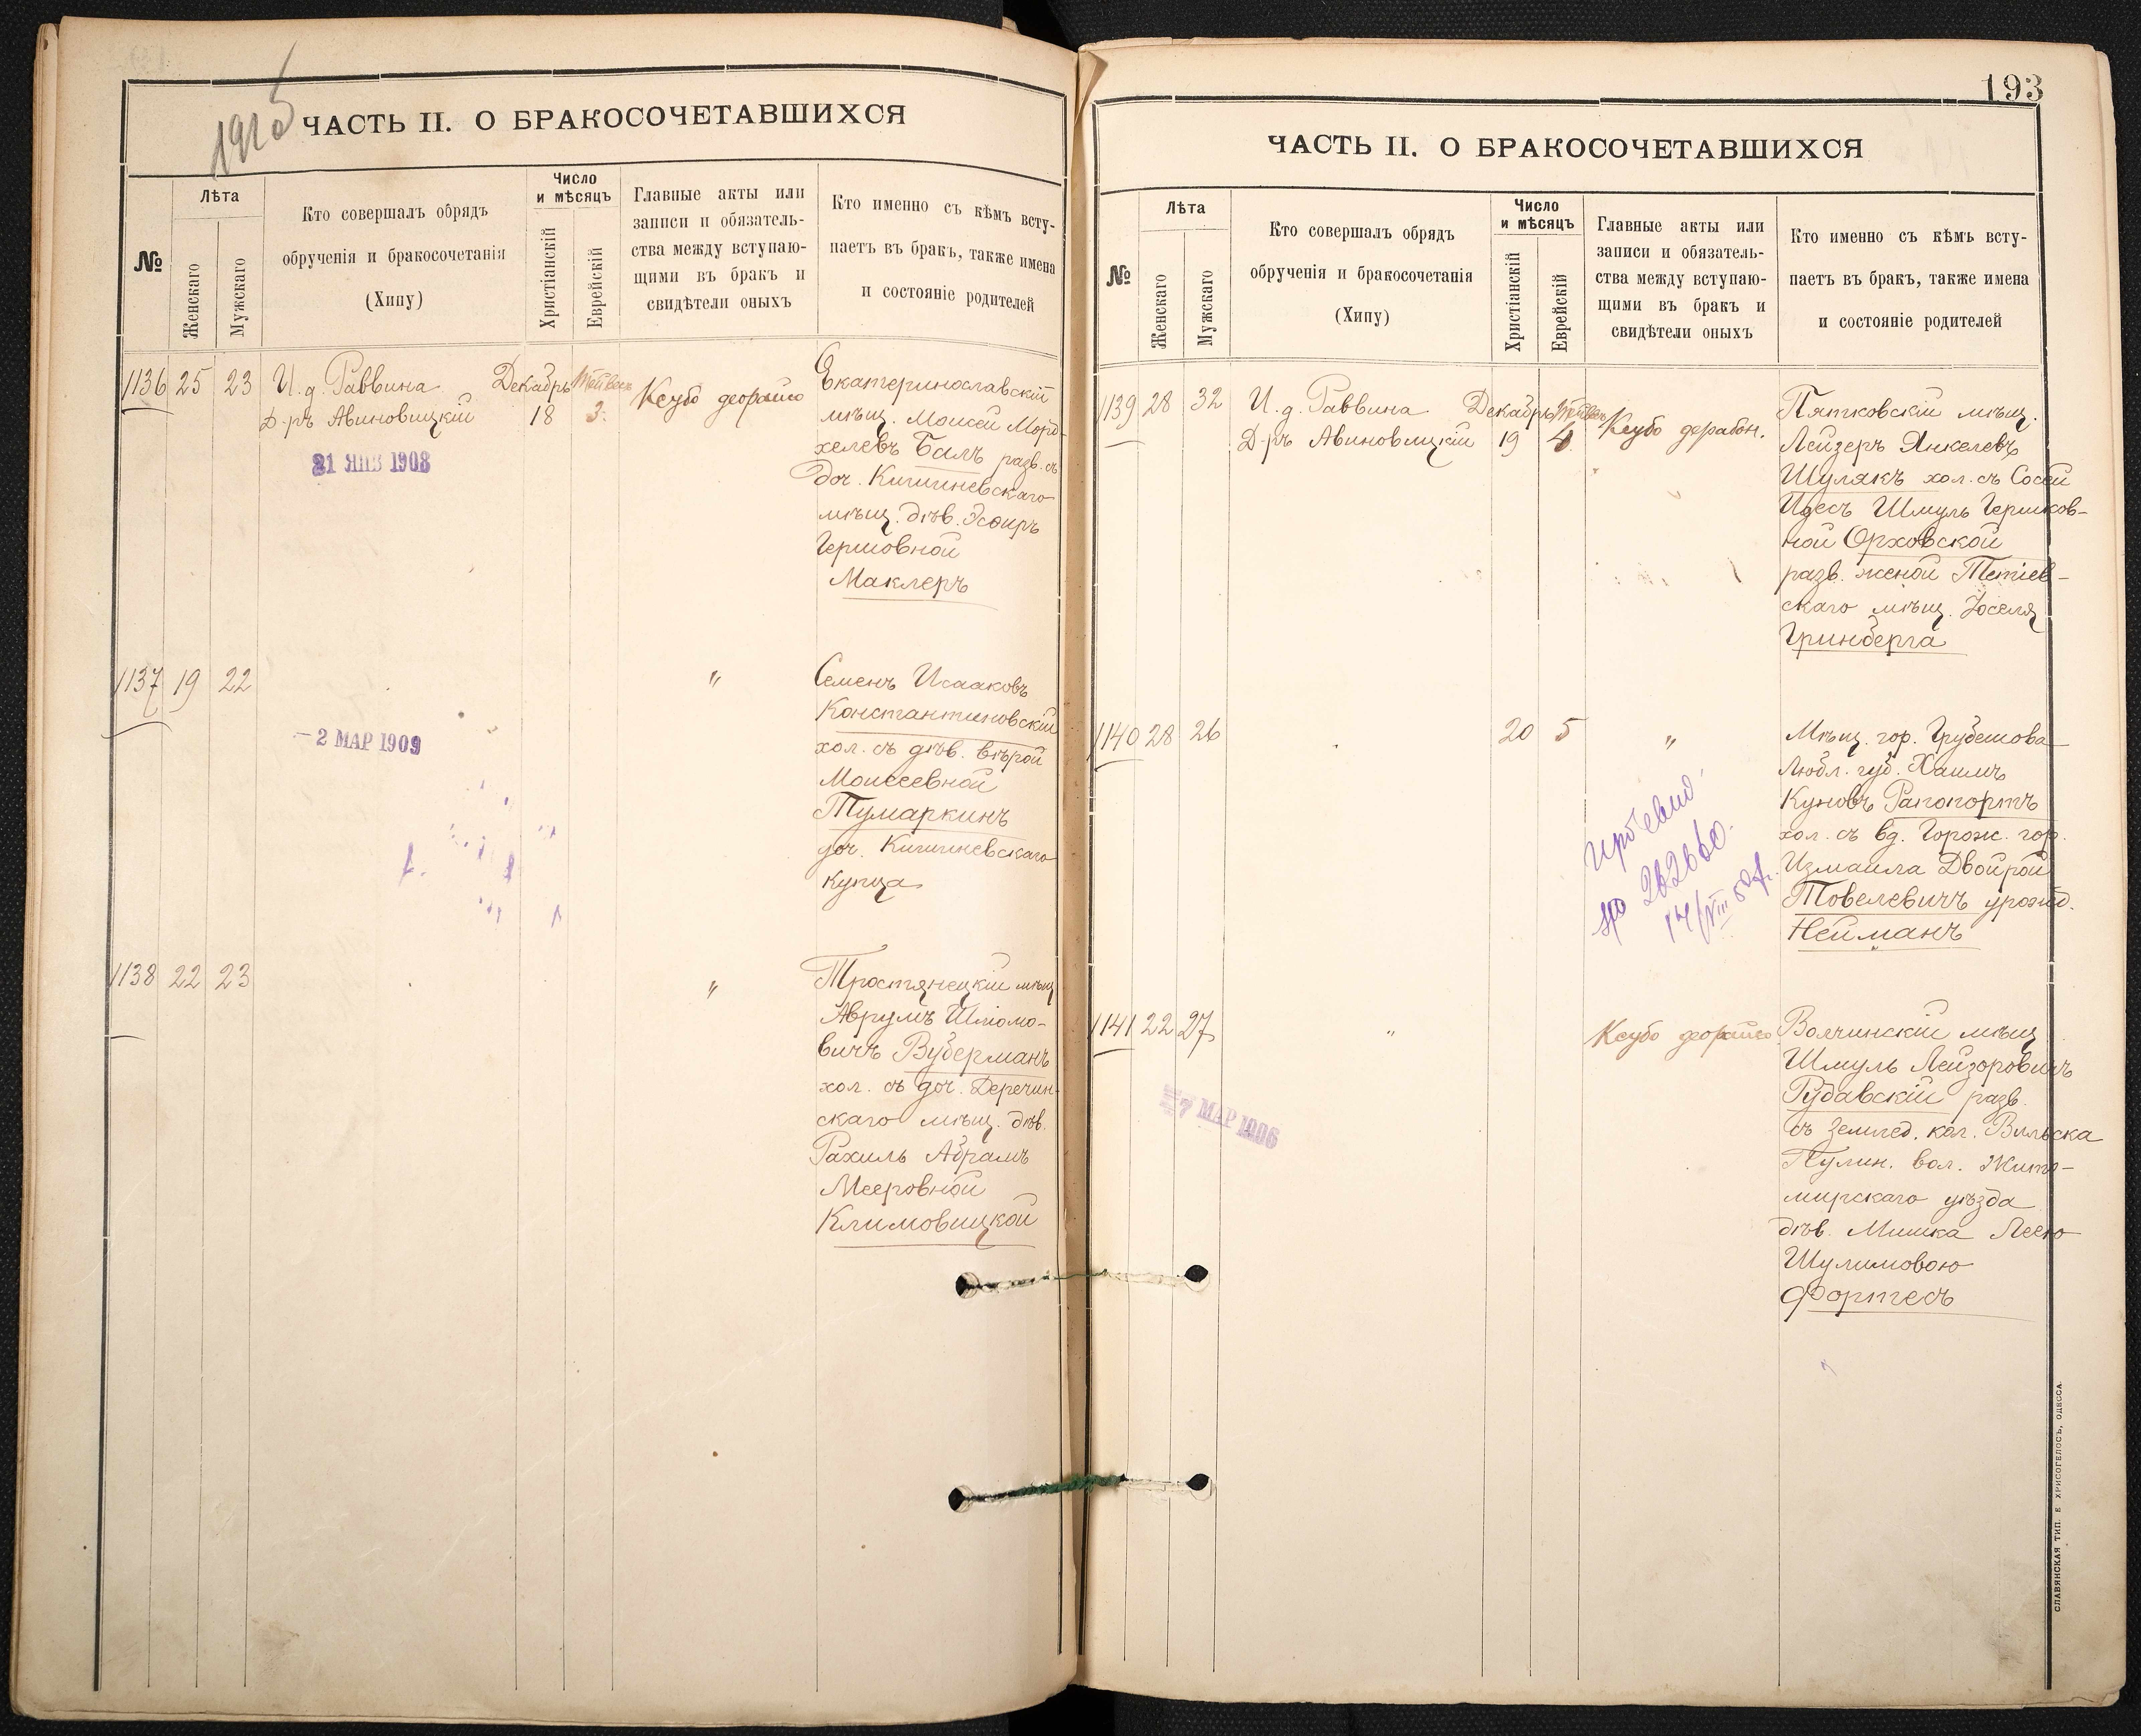 1905
ЧАСТЬ II. О БРАКОСОЧЕТАВШИХСЯ
№
Лѣта
Женскаго
Мужскаго
Кто совершалъ обрядъ
обрученія и бракосочетанія
(Хипу)
Число
и мѣсяцъ
Христіанскій
Еврейскій
Главные акты или
записи и обязатель-
ства между вступаю-
щими въ бракъ и
свидѣтели оныхъ
Кто именно съ кѣмъ всту-
паетъ въ бракъ, также имена
и состояніе родителей
1136 25 23 И. д. Раввина Декабрь Тейвесъ Ксубо деорайсо
Д-ръ Авиновицкій 18 3
21 ЯНВ 1908
Екатеринославскій
мѣщ. Моисей Морд-
хелевъ Балъ разв. съ
Доч. Кишиневскаго
мѣщ. дѣв. Эсѳирь
Гершовной
Маклеръ
1137 19 22 "
— 2 МАР 1909
Семенъ Исааковъ
Константиновскій
хол. съ дѣв. Вѣрой
Моисеевной
Тумаркинъ
доч. Кишиневскаго
купца
1138 22 23 "
Тростянецкій мѣщ
Аврумъ Шліомо-
вичъ Вуберманъ
хол. съ доч. Деречин-
скаго мѣщ. дѣв.
Рахиль Абрамъ
Мееровной
Климовицкой
193
ЧАСТЬ II. О БРАКОСОЧЕТАВШИХСЯ
№
Лѣта
Женскаго
Мужскаго
Кто совершалъ обрядъ
обрученія и бракосочетанія
(Хипу)
Число
и мѣсяцъ
Христіанскій
Еврейскій
Главные акты или
записи и обязатель-
ства между вступаю-
щими въ бракъ и
свидѣтели оныхъ
Кто именно съ кѣмъ всту-
паетъ въ бракъ, также имена
и состояніе родителей
1139 28 32 И. д. Раввина Декабрь Тейвесъ Ксубо дерабон.
Д-ръ Авиновицкій 19 4
Пятковскій мѣщ.
Лейзеръ Янкелевъ
Шулякъ хол. съ Сосей
Идесъ Шмуль Гершков-
ной Орховской
разв. женой Тетіев-
скаго мѣщ. Іоселя
Гринберга
1140 28 26 20 5 "
Мѣщ. гор. Грубешова
Любл. губ. Хаимъ
Куновъ Рапопортъ
хол. съ вд. Горож. гор.
Измаила Двойрой
Товелевичъ урожд.
Нейманъ
262660
14/VIII 52 г.
1141 22 27 " Ксубо деорайсо
7 МАР 1906
Волчинскій мѣщ
Шмуль Лейзоровичъ
Рудавскій разв.
съ землед. кол. Вильска
Пулин. вол. Жито-
мирскаго уѣзда
дѣв. Мишка Леею
Шулимовою
Фортесъ
СЛАВЯНСКАЯ ТИП. Е. ХРИСОГЕЛОСЪ, ОДЕССА.